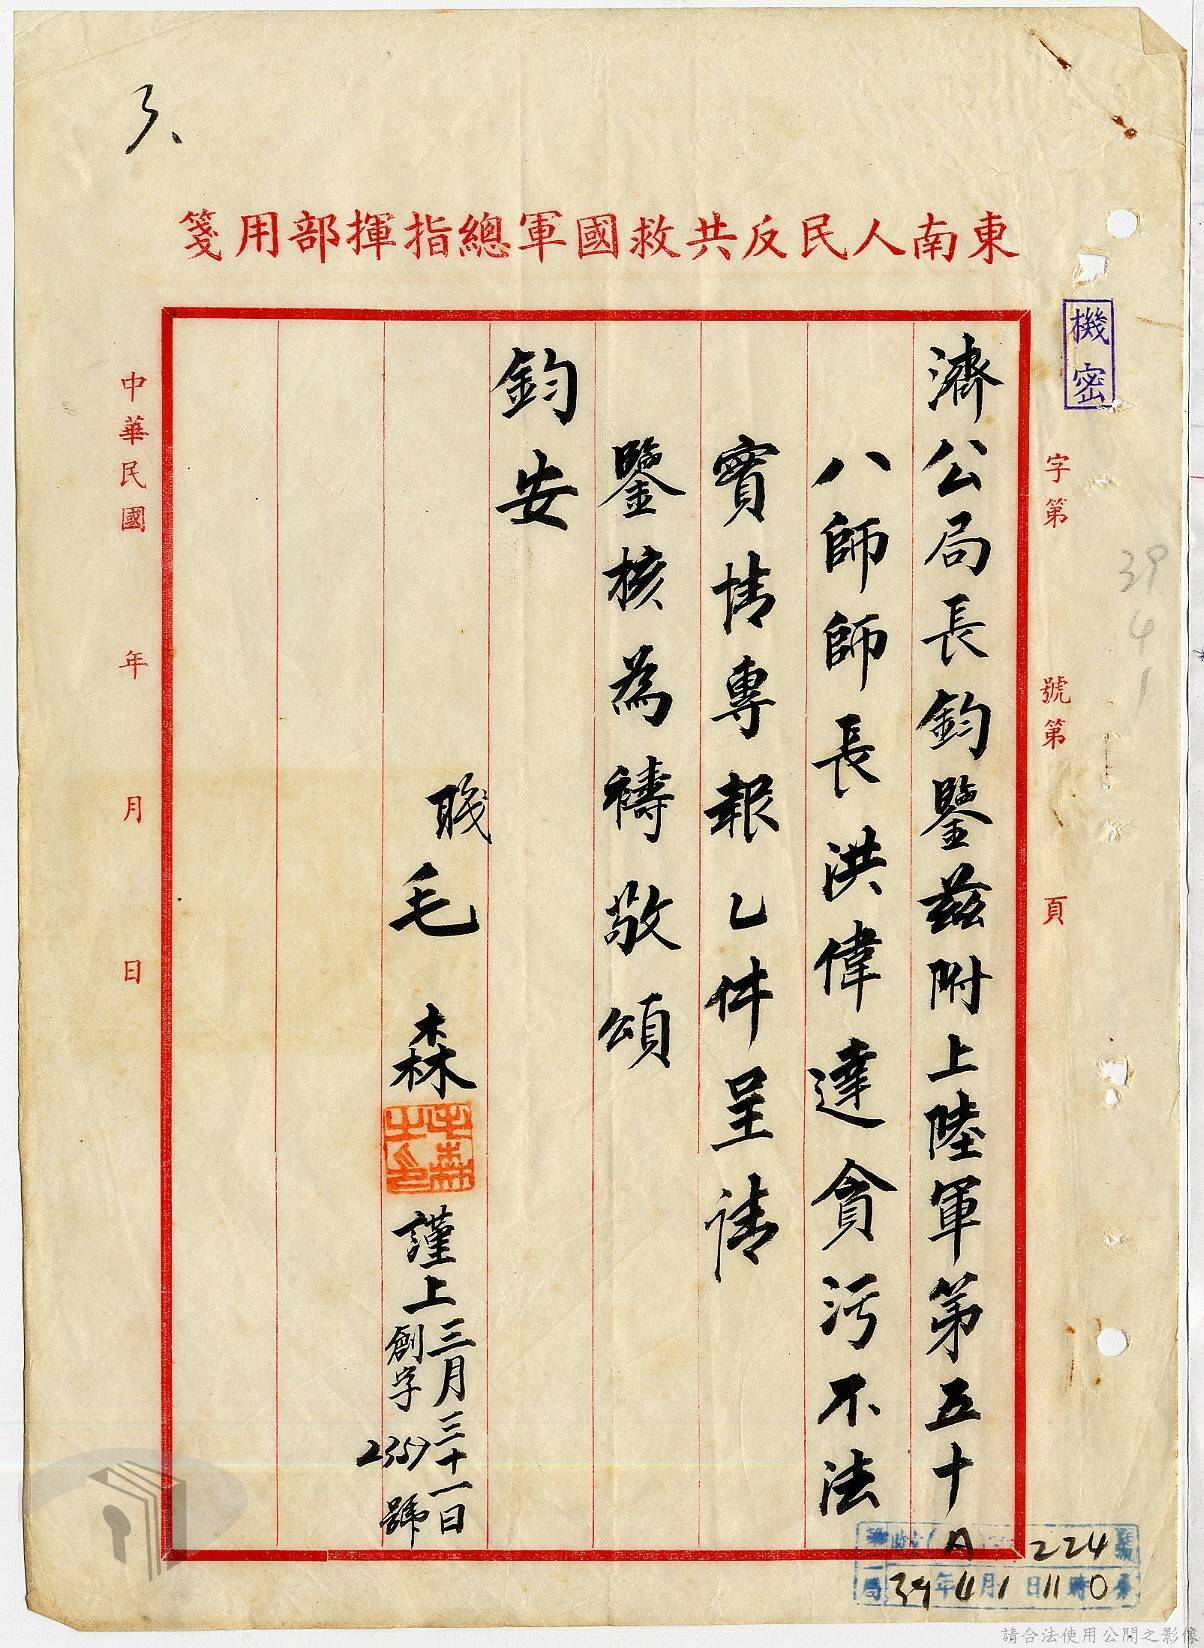 東南人民反共救國軍總指揮部用箋
機密
字第 號第 頁
39
4
1
濟公局長鈞鑒茲附上陸軍第五十
八師師長洪偉達貪污不法
實情專報乙件呈請
鑒核為禱敬頌
鈞安
職毛森
毛森之印
謹上三月三十一日
創字2357號
中華民國 年 月 日
A 224
局 39年4月1日11時0
請合法使用公開之影像